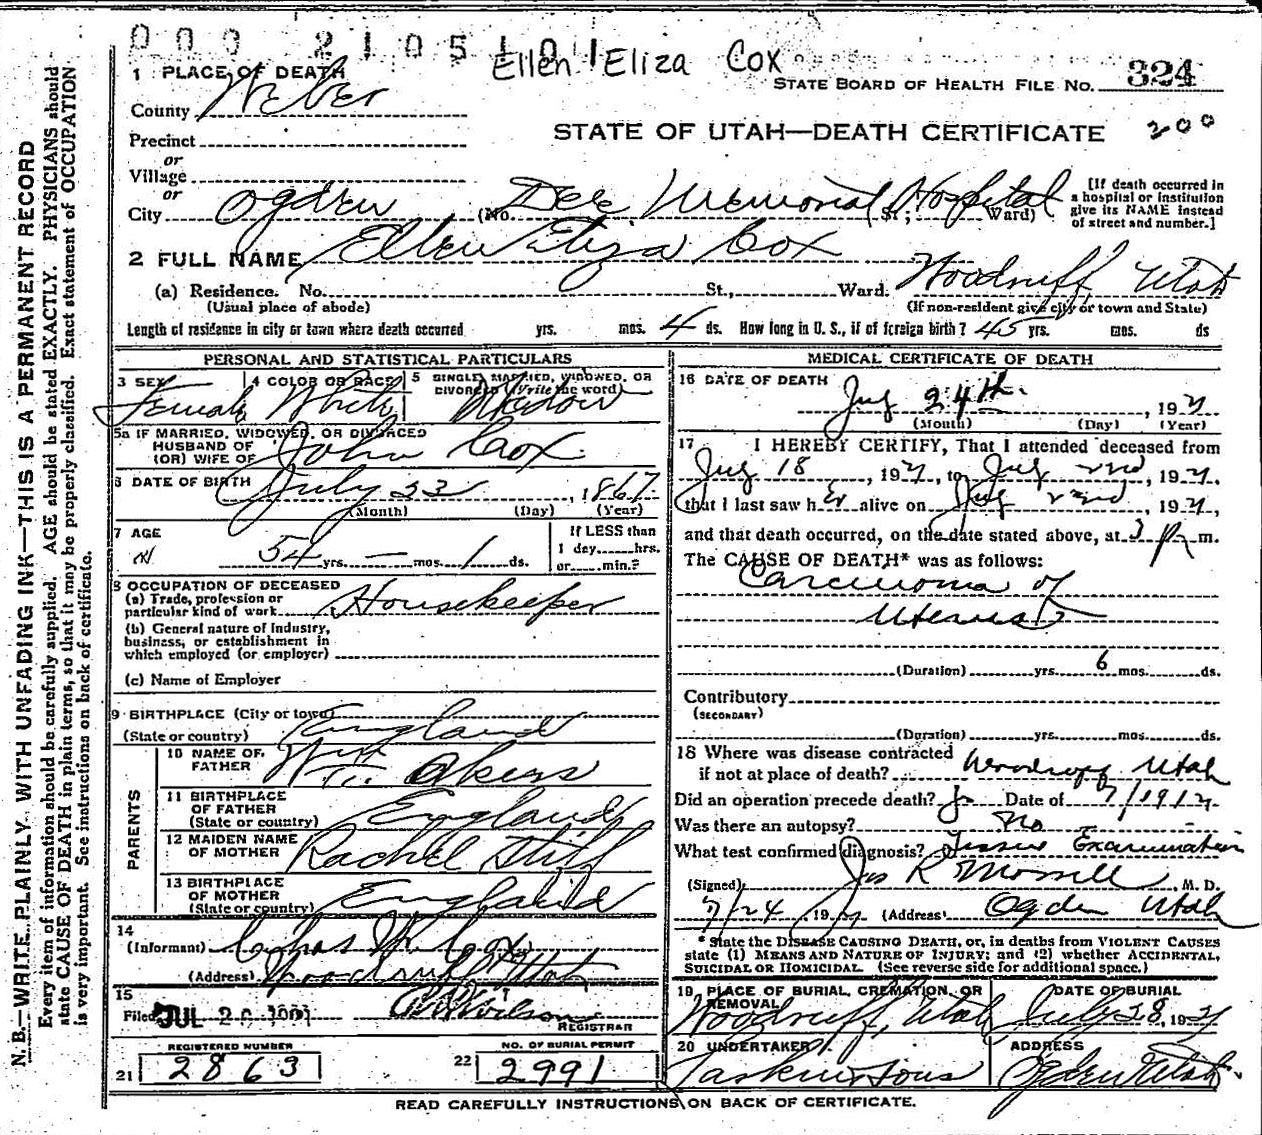 0 0 0 2 1 0 5 1 0 1
Ellen Eliza Cox
STATE BOARD OF HEALTH FILE NO. 324
1 PLACE OF DEATH
County Weber
STATE OF UTAH—DEATH CERTIFICATE 200
Precinct
or
Village
or
City Ogden (No. Dee Memorial Hospital St.; Ward)
[If death occurred in
a hospital or institution
give its NAME instead
of street and number.]
2 FULL NAME Ellen Eliza Cox
(a) Residence. No. St., Ward. Woodruff Utah
(Usual place of abode) (If non-resident give city or town and State)
Length of residence in city or town where death occurred yrs. mos. 4 ds. How long in U. S., if of foreign birth? 45 yrs. mos. ds
PERSONAL AND STATISTICAL PARTICULARS
3 SEX Female
4 COLOR OR RACE White
5 SINGLE, MARRIED, WIDOWED, OR
DIVORCED (Write the word) Widow
5a IF MARRIED, WIDOWED, OR DIVORCED
HUSBAND OF
(OR) WIFE OF John Cox
6 DATE OF BIRTH July 23, 1867
(Month) (Day) (Year)
7 AGE
54 yrs. — mos. 1 ds.
If LESS than
1 day, hrs.
or min.?
8 OCCUPATION OF DECEASED
(a) Trade, profession or
particular kind of work Housekeeper
(b) General nature of industry,
business, or establishment in
which employed (or employer)
(c) Name of Employer
9 BIRTHPLACE (City or town)
(State or country) England
PARENTS
10 NAME OF
FATHER Wm Akers
11 BIRTHPLACE
OF FATHER
(State or country) England
12 MAIDEN NAME
OF MOTHER Rachel
13 BIRTHPLACE
OF MOTHER
(State or country) England
14
(Informant) Chas W. Cox
(Address) Woodruff Utah
15
Filed JUL
Wilson
REGISTRAR
REGISTERED NUMBER
21 2863
NO. OF BURIAL PERMIT
22 2991
MEDICAL CERTIFICATE OF DEATH
16 DATE OF DEATH
July 24th, 1921
(Month) (Day) (Year)
17 I HEREBY CERTIFY, That I attended deceased from
July 18, 1921, to July 22nd, 1921,
that I last saw her alive on July 22nd, 1921,
and that death occurred, on the date stated above, at 3 p m.
The CAUSE OF DEATH* was as follows:
Carcinoma of
Uterus
(Duration) yrs. 6 mos. ds.
Contributory
(SECONDARY)
(Duration) yrs. mos. ds.
18 Where was disease contracted
if not at place of death? Woodruff Utah
Did an operation precede death? Date of
Was there an autopsy? No
What test confirmed diagnosis? Tissue Examination
(Signed) Jos R Morrell, M. D.
7/24, 1921 (Address) Ogden Utah
* State the DISEASE CAUSING DEATH, or, in deaths from VIOLENT CAUSES
state (1) MEANS AND NATURE OF INJURY; and (2) whether ACCIDENTAL,
SUICIDAL OR HOMICIDAL. (See reverse side for additional space.)
19 PLACE OF BURIAL, CREMATION, OR
REMOVAL
Woodruff, Utah
DATE OF BURIAL
July 28, 1921
20 UNDERTAKER
Larkin & Sons
ADDRESS
Ogden Utah
READ CAREFULLY INSTRUCTIONS ON BACK OF CERTIFICATE.
N. B.—WRITE PLAINLY WITH UNFADING INK—THIS IS A PERMANENT RECORD
Every item of information should be carefully supplied. AGE should be stated EXACTLY. PHYSICIANS should
state CAUSE OF DEATH in plain terms, so that it may be properly classified. Exact statement of OCCUPATION
is very important. See instructions on back of certificate.